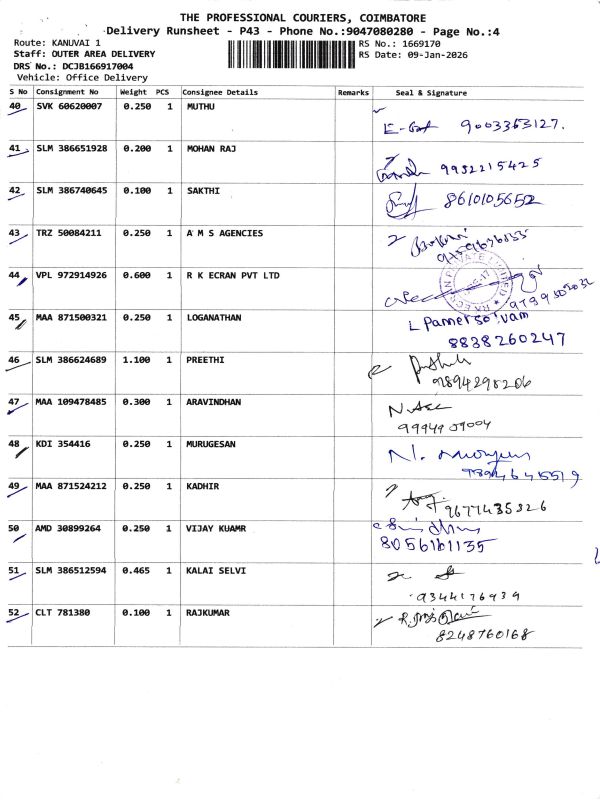 THE PROFESSIONAL COURIERS, COIMBATORE
Delivery Runsheet - P43 - Phone No.:9047080280 - Page No.:4
Route: KANUVAI 1
Staff: OUTER AREA DELIVERY
DRS No.: DCJB166917004
Vehicle: Office Delivery
RS No.: 1669170
RS Date: 09-Jan-2026
S No Consignment No Weight PCS Consignee Details Remarks Seal & Signature
40 SVK 60620007 0.250 1 MUTHU
9003363127.
41 SLM 386651928 0.200 1 MOHAN RAJ
9932215425
42 SLM 386740645 0.100 1 SAKTHI
8610105652
43 TRZ 50084211 0.250 1 A M S AGENCIES
44 VPL 972914926 0.600 1 R K ECRAN PVT LTD
45 MAA 871500321 0.250 1 LOGANATHAN
8838260247
46 SLM 386624689 1.100 1 PREETHI
9894298206
47 MAA 109478485 0.300 1 ARAVINDHAN
48 KDI 354416 0.250 1 MURUGESAN
49 MAA 871524212 0.250 1 KADHIR
9677435326
50 AMD 30899264 0.250 1 VIJAY KUAMR
8056161135
51 SLM 386512594 0.465 1 KALAI SELVI
9344176939
52 CLT 781380 0.100 1 RAJKUMAR
8248760168